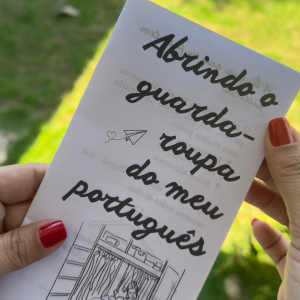 Abrindo o
guarda-
roupa
do meu
português